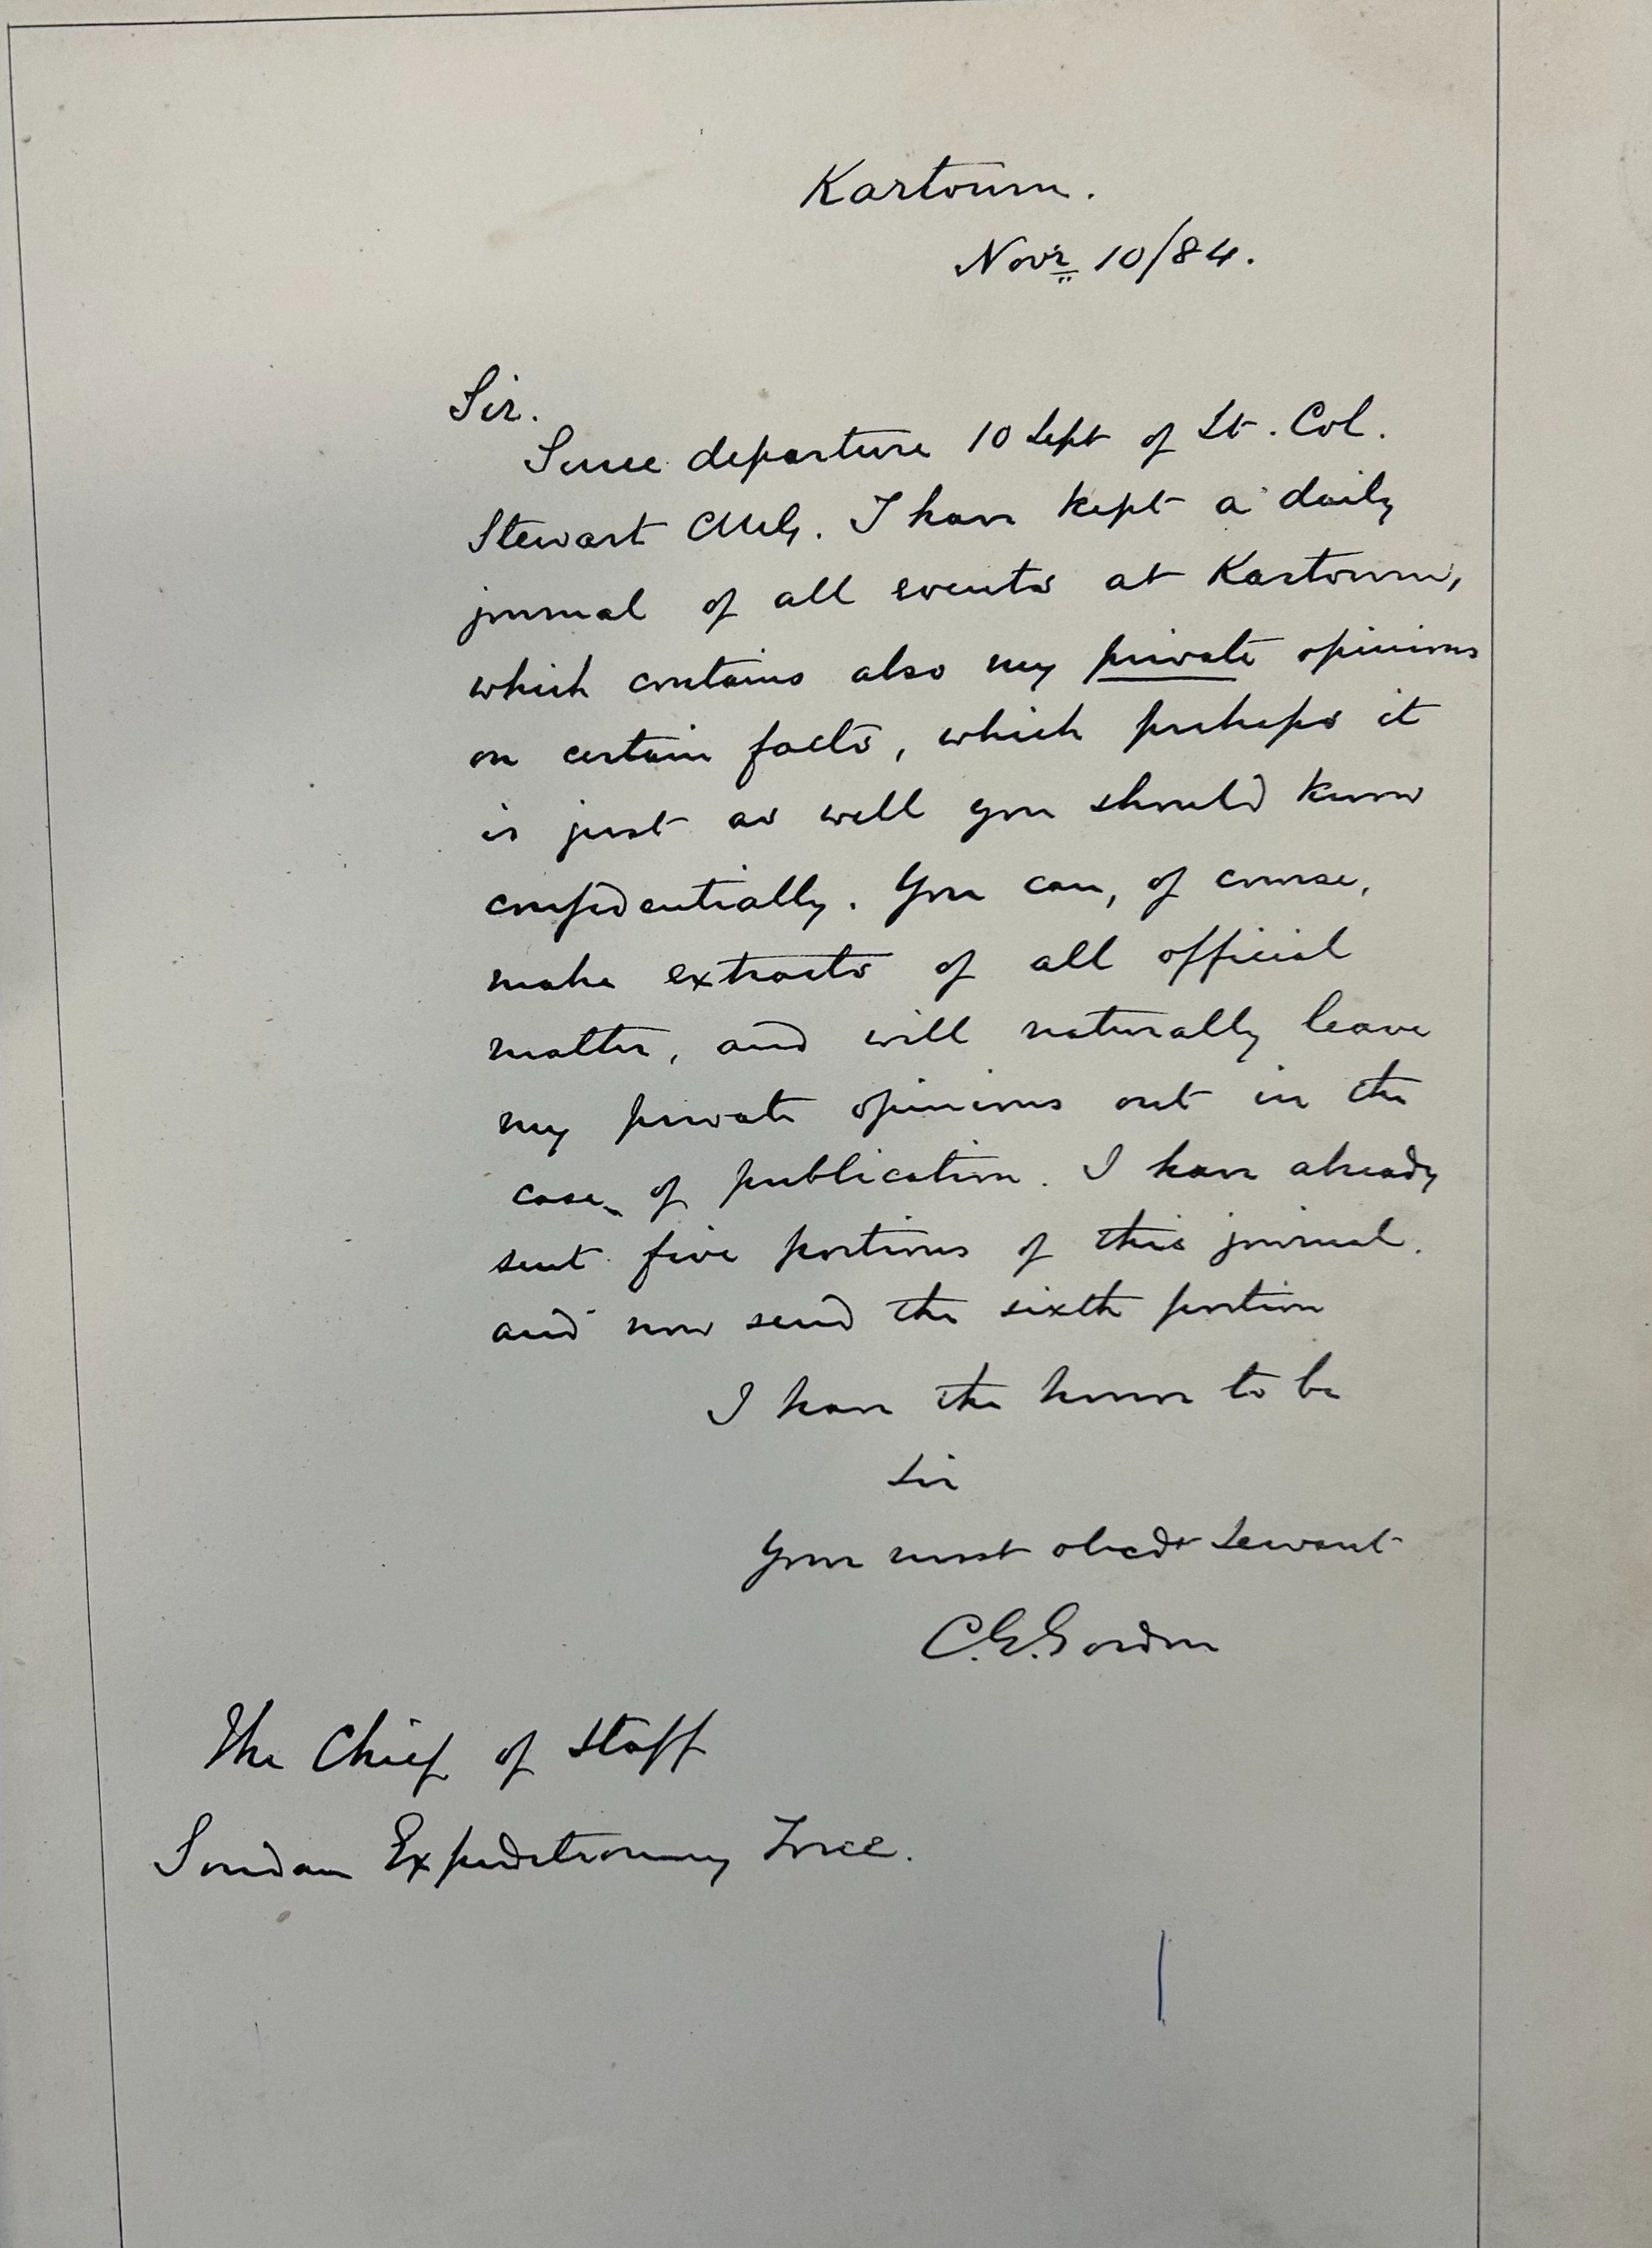 Kartoum.
Novr 10/84.
Sir.
Since departure 10 Sept of Lt. Col.
Stewart CMG. I have kept a daily
journal of all events at Kartoum,
which contains also my private opinions
on certain facts, which perhaps it
is just as well you should know
confidentially. You can, of course,
make extracts of all official
matter, and will naturally leave
my private opinions out in the
case of publication. I have already
sent five portions of this journal.
and now send the sixth portion
I have the honor to be
Sir
Your most obedt servant
C.G.Gordon
The Chief of Staff
Soudan Expeditionary Force.